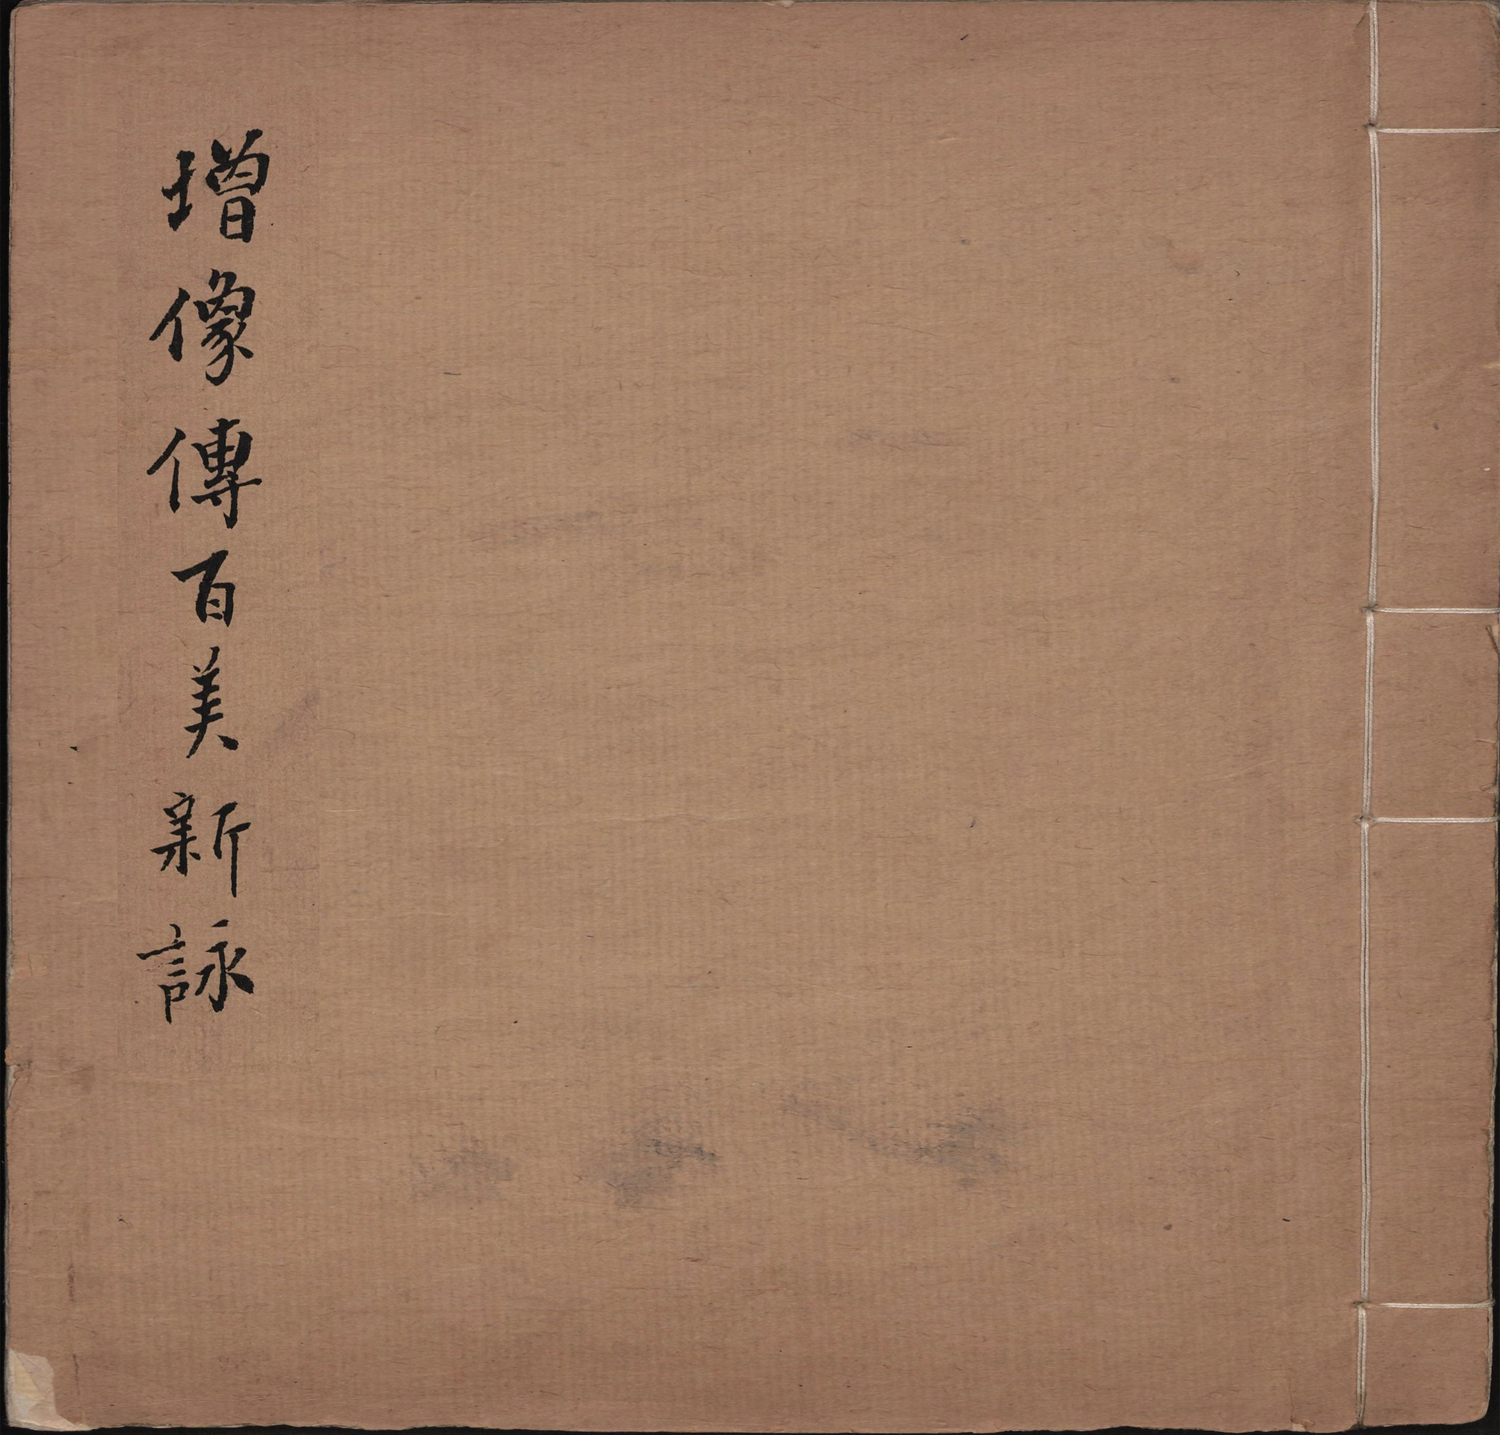 增像傳百美新詠